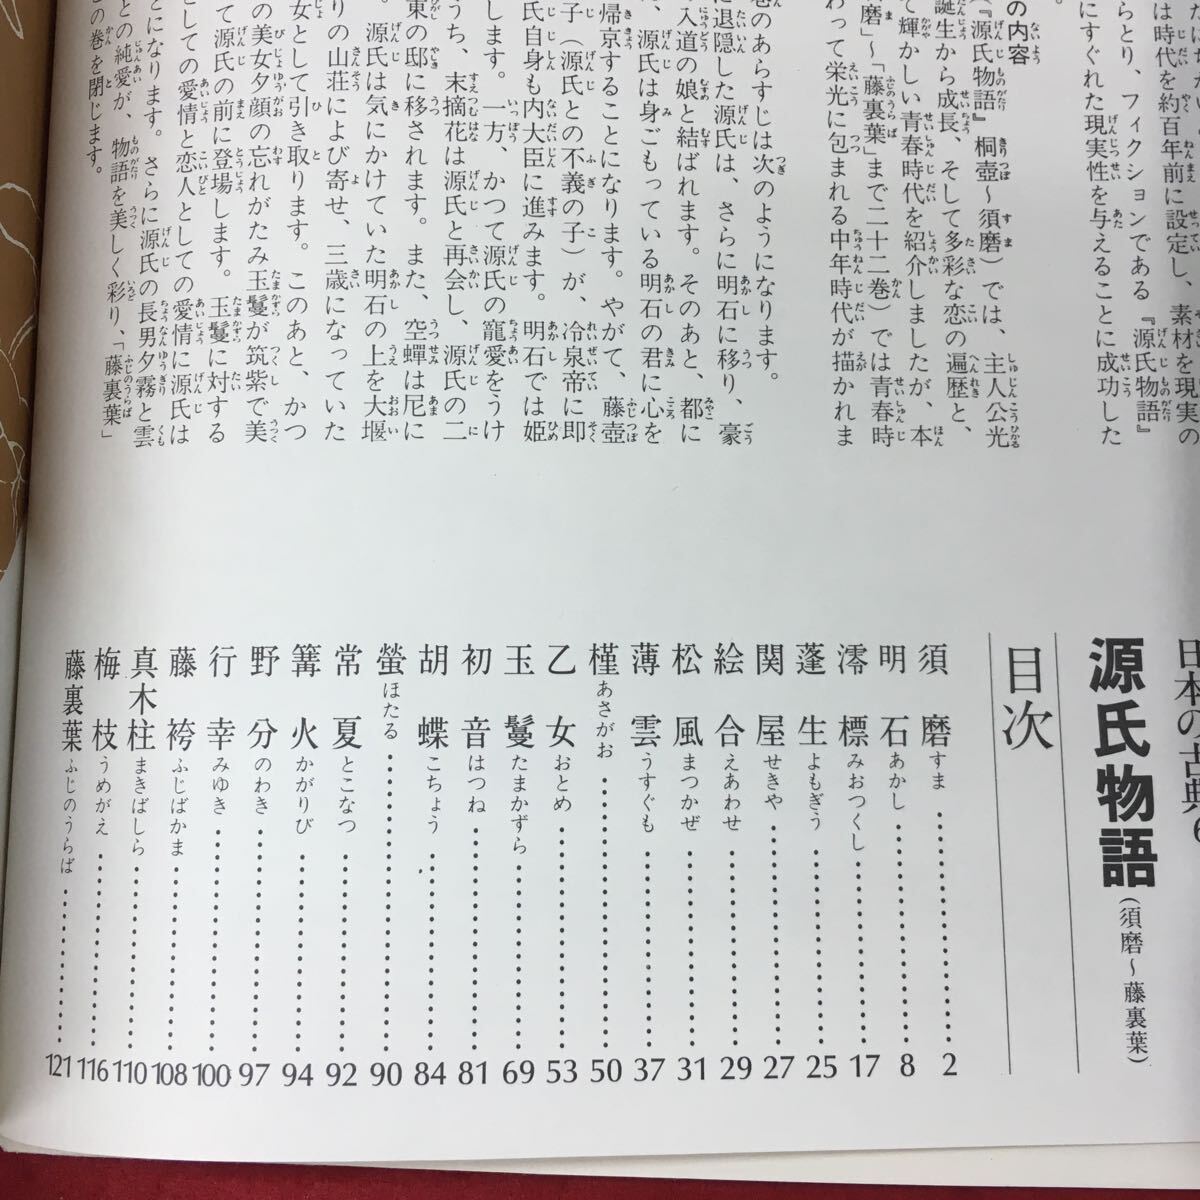 は時代を約百年前に設定し、素材を現実の
らとり、フィクションである『源氏物語』
にすぐれた現実性を与えることに成功した
の内容
『源氏物語』桐壺～須磨）では、主人公光
誕生から成長、そして多彩な恋の遍歴と、
て輝かしい青春時代を紹介しましたが、本
磨」～「藤裏葉」まで二十二巻）では青春時
わって栄光に包まれる中年時代が描かれま
巻のあらすじは次のようになります。
に退隠した源氏は、さらに明石に移り、豪
の入道の娘と結ばれます。そのあと、都に
、源氏は身ごもっている明石の君に心を
帰京することになります。やがて、藤壺
子（源氏との不義の子）が、冷泉帝に即
氏自身も内大臣に進みます。明石では姫
します。一方、かつて源氏の寵愛をうけ
うち、末摘花は源氏と再会し、源氏の二
東の邸に移されます。また、空蟬は尼に
。源氏は気にかけていた明石の上を大堰
りの山荘によび寄せ、三歳になっていた
女として引き取ります。このあと、かつ
の美女夕顔の忘れがたみ玉鬘が筑紫で美
て源氏の前に登場します。玉鬘に対する
としての愛情と恋人としての愛情に源氏は
とになります。さらに源氏の長男夕霧と雲
との純愛が、物語を美しく彩り、「藤裏葉」
の巻を閉じます。
日本の古典6
源氏物語（須磨～藤裏葉）
目次
須磨 すま 2
明石 あかし 8
澪標 みおつくし 17
蓬生 よもぎう 25
関屋 せきや 27
絵合 えあわせ 29
松風 まつかぜ 31
薄雲 うすぐも 37
槿 あさがお 50
乙女 おとめ 53
玉鬘 たまかずら 69
初音 はつね 81
胡蝶 こちょう 84
螢 ほたる 90
常夏 とこなつ 92
篝火 かがりび 94
野分 のわき 97
行幸 みゆき 100
藤袴 ふじばかま 108
真木柱 まきばしら 110
梅枝 うめがえ 116
藤裏葉 ふじのうらば 121